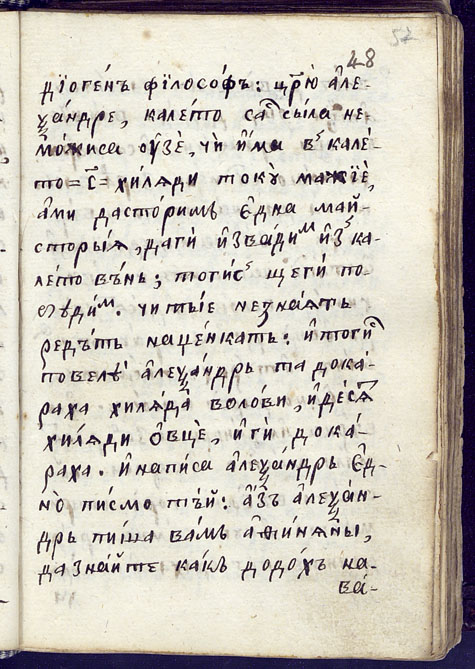 48 52
дїогéнъ фїлосóфъ: цр҃ю̀ а҆ле-
ѯáндре, калéто саⷭ҇ сы́ла не-
мóжиса ѹ҆зѐ, чѝ и҆́ма вꙿ калé-
то =с҃= хи́лѧди токꙋ̀ мажїѐ,
áми дастóримъ є҆дна май-
сторы́ѧ, даги и҆звáдиⷨ и҆зꙿ ка-
лéто вънь; тогиⷭ҇ щеги по-
бꙋди́ⷨ. читы́е незнáѧть
редъть нащéнкать: и҆тогиⷭ҇
повелѣ̀ а҆леѯáндрь та дока-
раха хилѧ́да волóви, и҆ дéсѧⷮ
хи́лѧди ѻ҆вцѐ, и҆ гѝ докá-
раха. и҆ напи́са а҆леѯáндрь є҆д-
нò пи́смо тъ́й: а҆́зъ а҆леѯáн-
дрь пи́ша вáмъ а҆ѳинѧ́ны,
дазнáйте кáкъ додóхъ на-
вá-